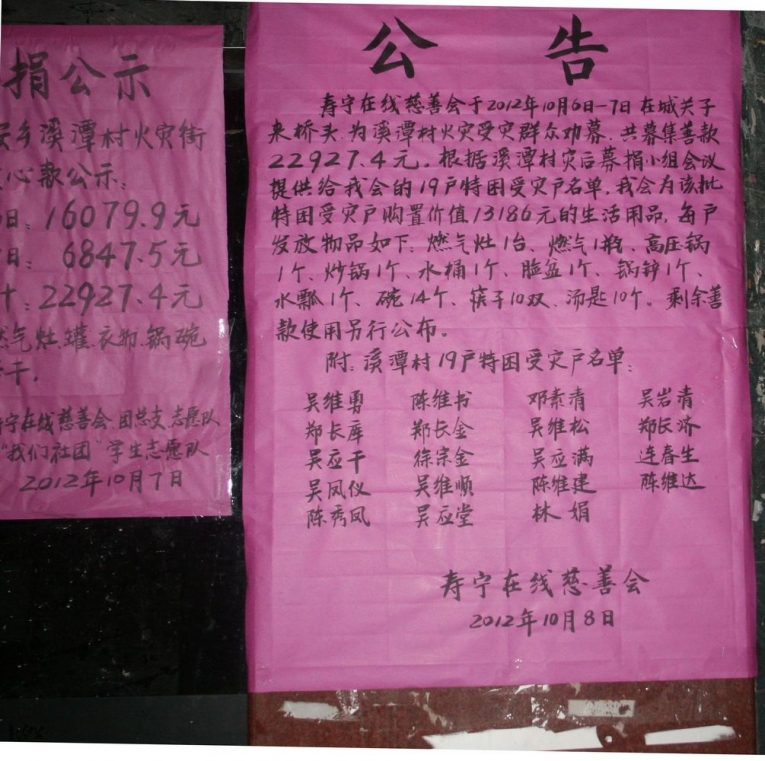 捐公示
安乡溪潭村火灾街
心款公示:
日:16079.9元
日: 6847.5元
计:22927.4元
燃气灶.罐.衣物.锅碗
若干。
寿宁在线慈善会.团总支志愿队
"我们社团"学生志愿队
2012年10月7日
公 告
寿宁在线慈善会于2012年10月6日-7日在城关子
来桥头.为溪潭村火灾受灾群众劝募.共募集善款
22927.4元。根据溪潭村灾后募捐小组会议
提供给我会的19户特困受灾户名单,我会为该批
特困受灾户购置价值13186元的生活用品,每户
发放物品如下:燃气灶1台、燃气1瓶、高压锅
1个、炒锅1个、水桶1个、脸盆1个、锅锌1个、
水瓢1个、碗14个、筷子10双、汤匙10个。剩余善
款使用另行公布。
附:溪潭村19户特困受灾户名单:
吴维勇 陈维书 邓素清 吴岩清
郑长库 郑长金 吴维松 郑长济
吴应干 徐宗金 吴应满 连春生
吴凤仪 吴维顺 陈维建 陈维达
陈秀凤 吴应堂 林娟
寿宁在线慈善会
2012年10月8日